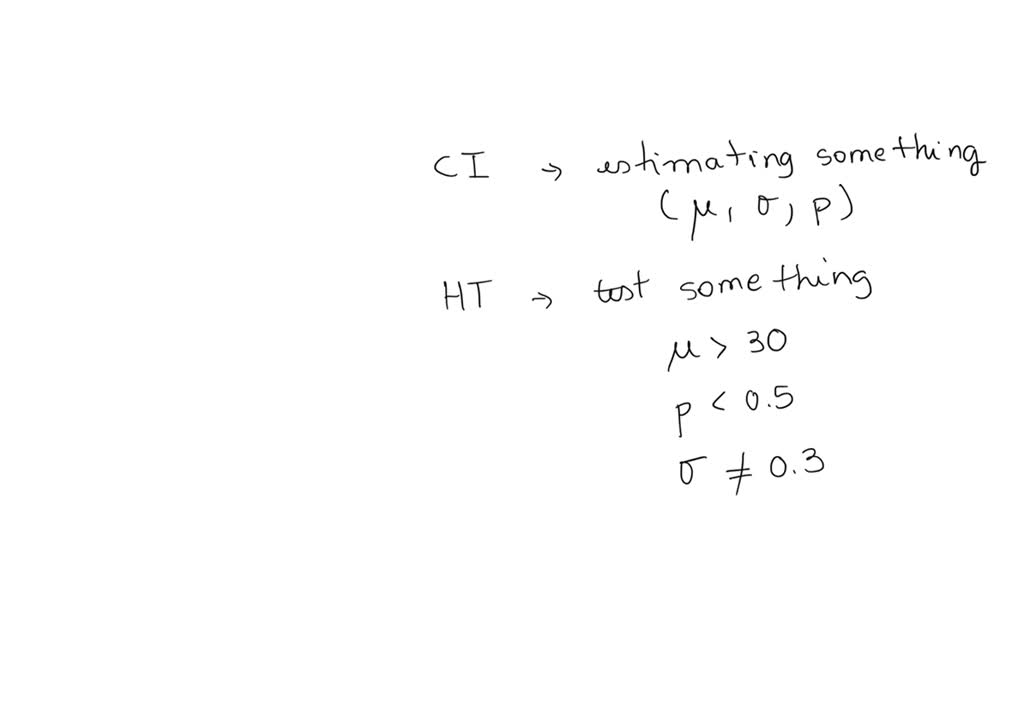 CI → estimating something
(μ, σ, p)
HT → test something
μ > 30
p < 0.5
σ ≠ 0.3